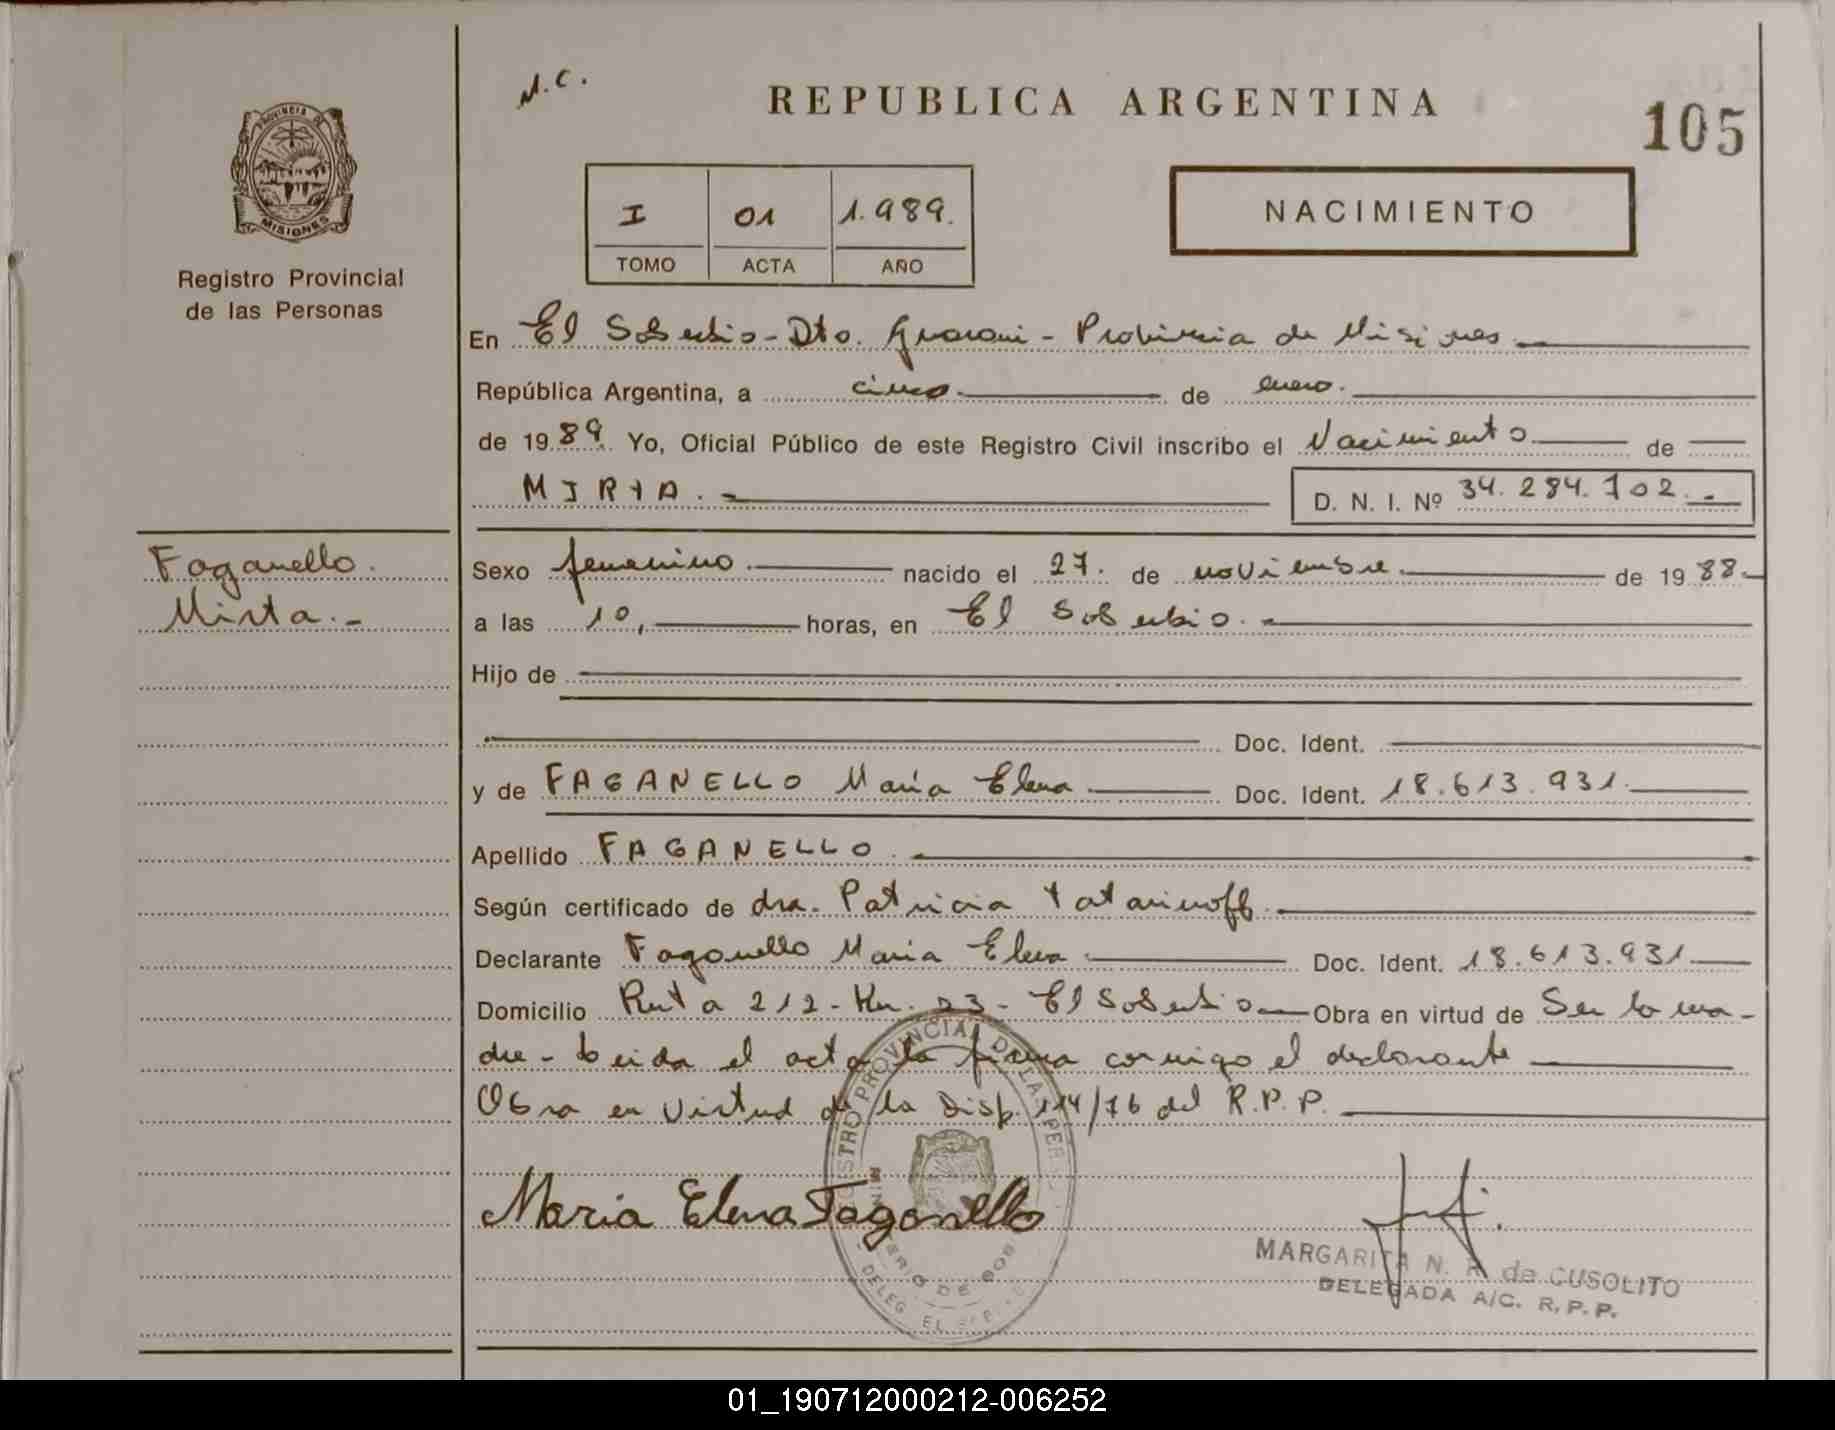 M.C.
REPUBLICA ARGENTINA
105
PROVINCIA DE
MISIONES
Registro Provincial
de las Personas
I 01 1.989.
TOMO ACTA AÑO
NACIMIENTO
En El Soberbio - Dto. Guarani - Provincia de Misiones
República Argentina, a cinco de enero.
de 1989. Yo, Oficial Público de este Registro Civil inscribo el Nacimiento de
MIRTA. D. N. I. Nº 34.284.702.-
Faganello.
Mirta.-
Sexo femenino. nacido el 27. de noviembre. de 1988.-
a las 10, horas, en El Soberbio.
Hijo de
Doc. Ident.
y de FAGANELLO María Elena Doc. Ident. 18.613.931.
Apellido FAGANELLO.
Según certificado de dra. Patricia Tatarinoff.
Declarante Faganello Maria Elena Doc. Ident. 18.613.931
Domicilio Ruta 212 - Km. 23 - El Soberbio Obra en virtud de Ser la ma-
dre - Leida el acta la firma conmigo el declarante
Obra en virtud de la Disp. 114/76 del R.P.P.
Maria Elena Faganello
MARGARITA N. R. de CUSOLITO
DELEGADA A/C. R.P.P.
01_190712000212-006252